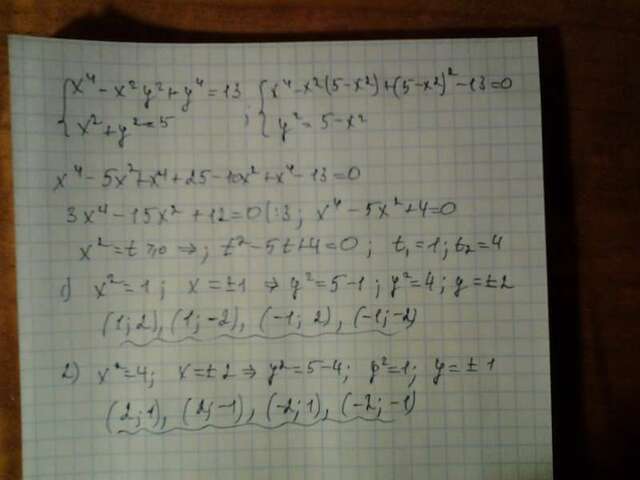 { x⁴ - x²y² + y⁴ = 13 ; { x⁴ - x²(5-x²) + (5-x²)² - 13 = 0
x² + y² = 5 y² = 5 - x²
x⁴ - 5x² + x⁴ + 25 - 10x² + x⁴ - 13 = 0
3x⁴ - 15x² + 12 = 0 |:3 ; x⁴ - 5x² + 4 = 0
x² = t ≥ 0 ⇒ ; t² - 5t + 4 = 0 ; t₁ = 1 ; t₂ = 4
1) x² = 1 ; x = ±1 ⇒ y² = 5-1 ; y² = 4 ; y = ±2
(1; 2), (1; -2), (-1; 2), (-1; -2)
2) x² = 4; x = ±2 ⇒ y² = 5-4; y² = 1; y = ±1
(2; 1), (2; -1), (-2; 1), (-2; -1)